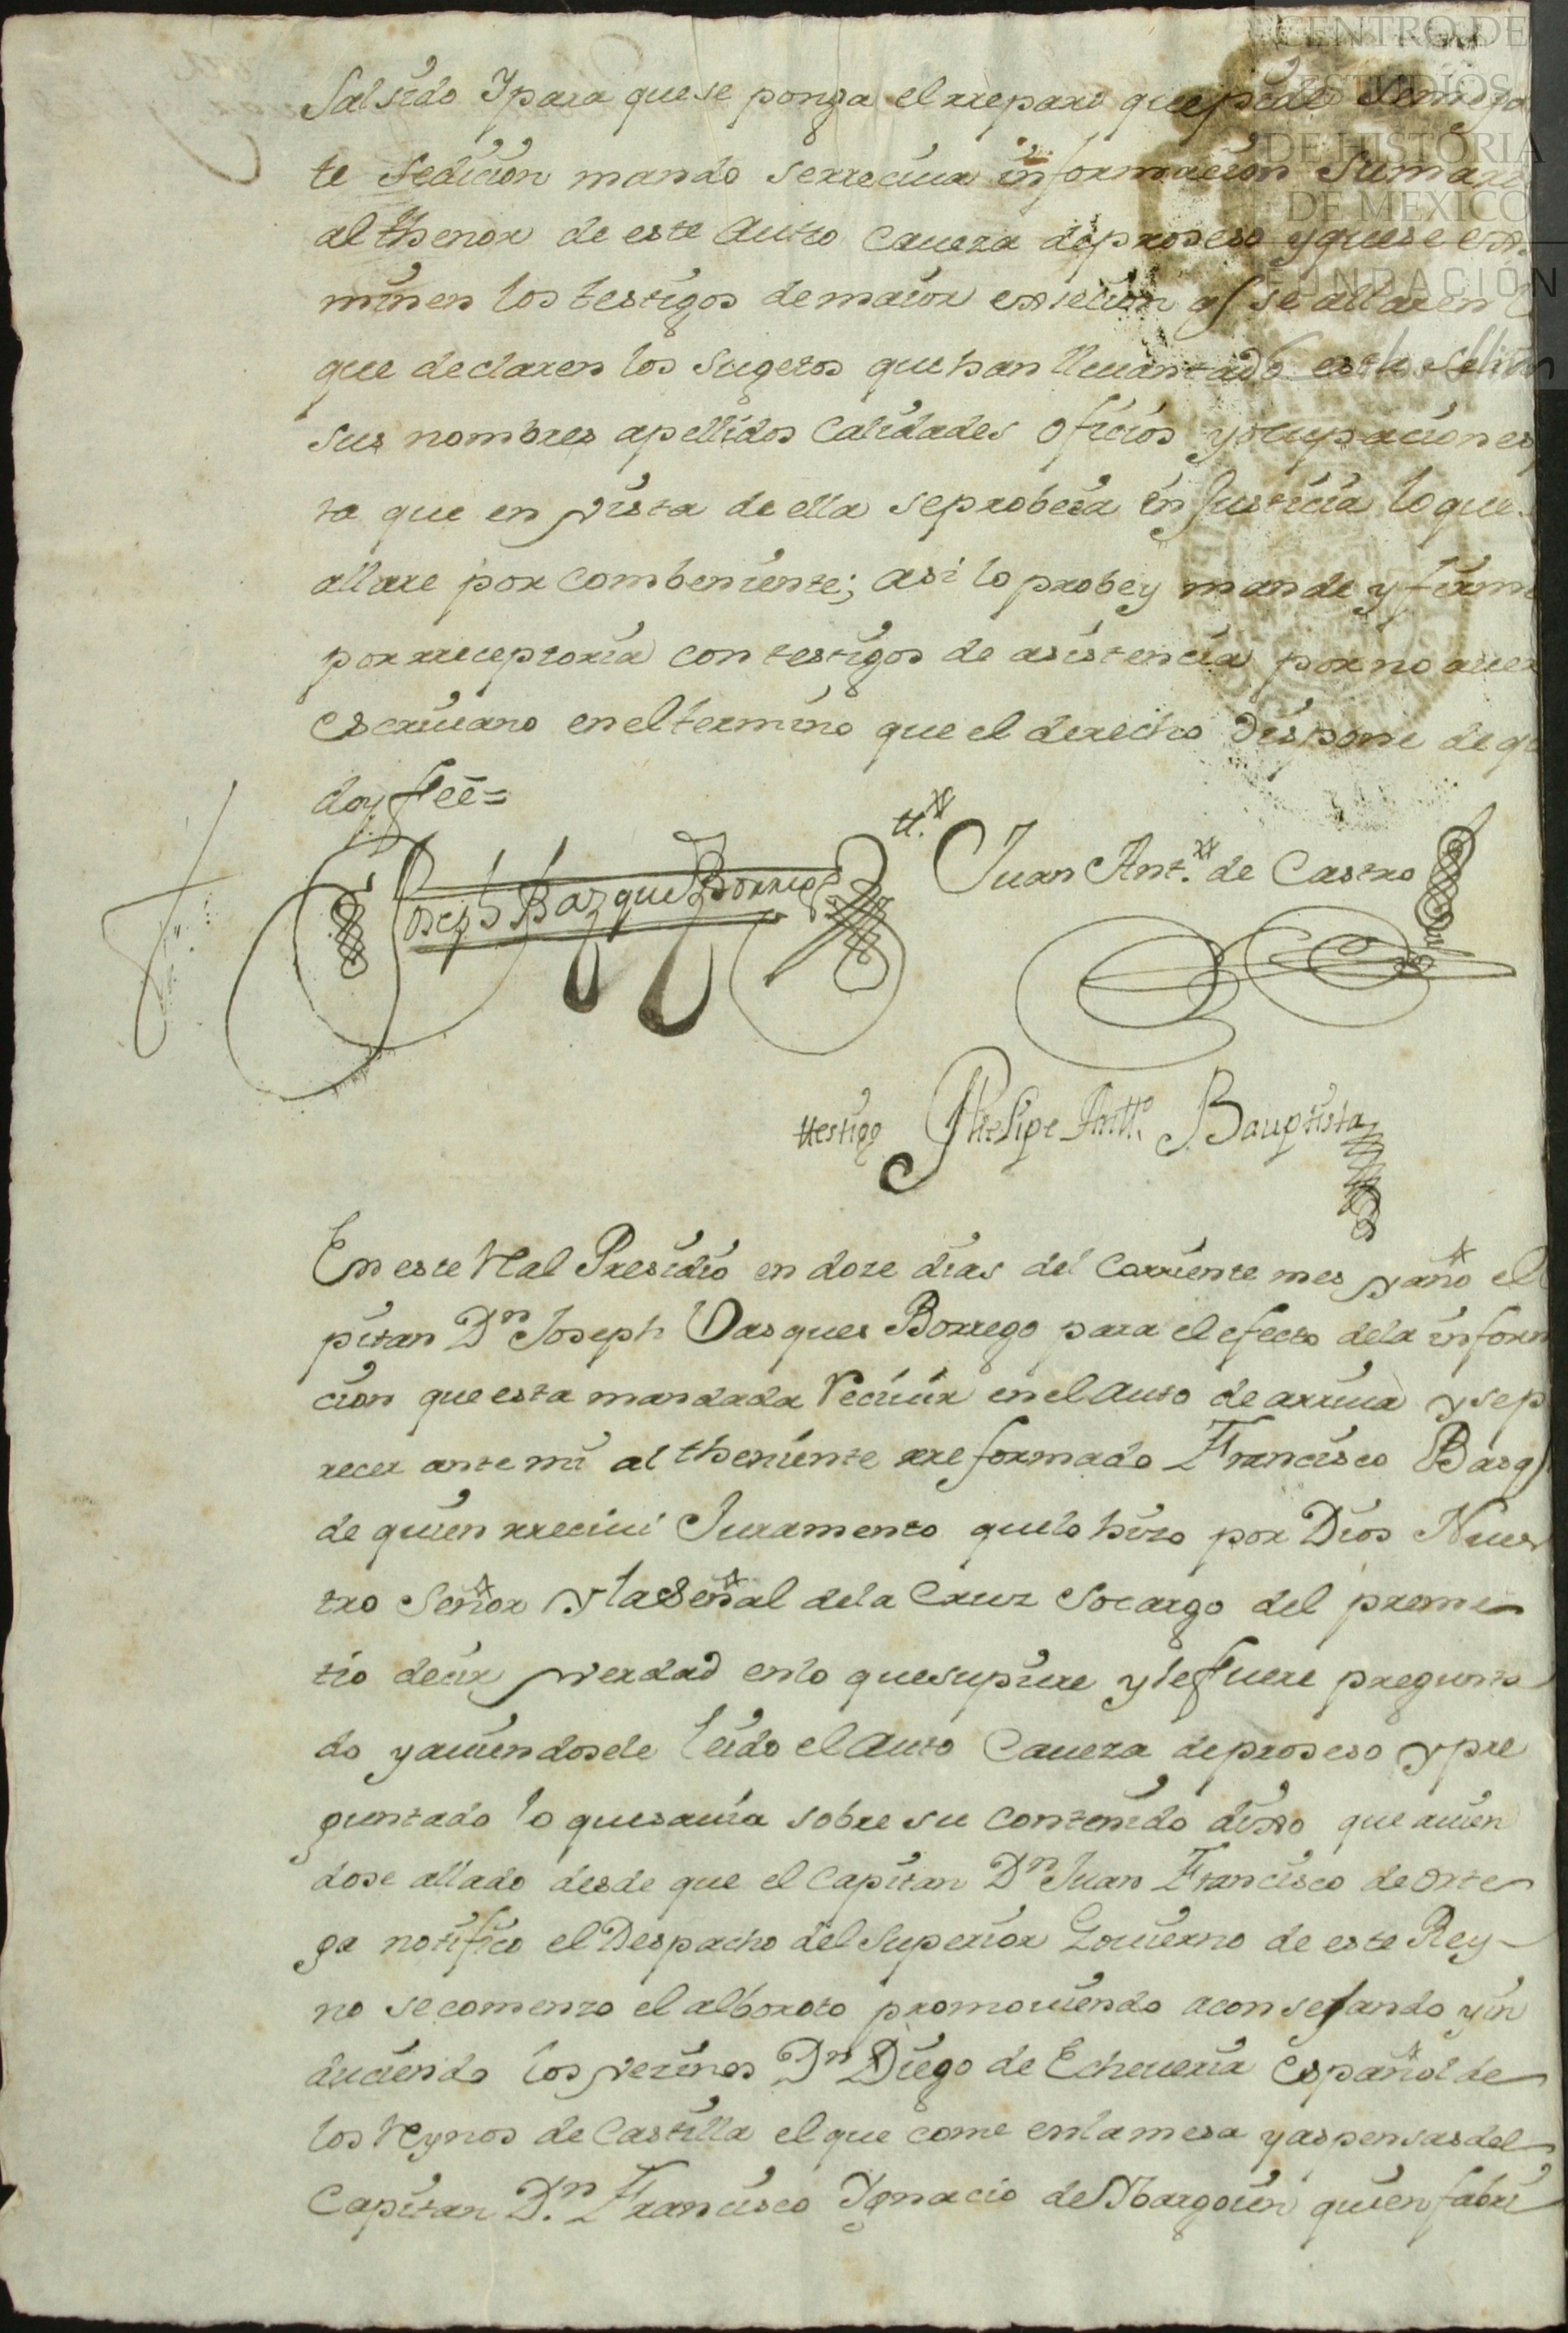 CENTRO DE
ESTUDIOS
DE HISTORIA
DE MEXICO
FUNDACIÓN
salsido Y para que se ponga el rreparo que pide semeja
te sedicion mando se rreciua informacion sumaria
al thenor de este auto caueza de proseso y que se exa
minen los testigos de maior exsecion q se allaren
que declaren los sugetos que han lleuantado esta
sus nombres apellidos calidades oficios y ocupaciones
ta que en vista de ella se probeia en Justicia lo que
allare por combeniente; asi lo probey mande y firme
por rreceptoria con testigos de asistencia por no auer
escriuano en el termino que el derecho dispone de q
doy feè=
Joseph Bazquez Borrego
tt.º Juan Ant.º de Castro
ttestigo Phelipe Antt.º Bauptista
En este Real Presidio en doze dias del corriente mes y año el
pitan Dn Joseph Vasques Borrego para el efecto de la inform
cion que esta mandada Reciuir en el auto de arriua y se p
recer ante mi al theniente rreformado Francisco Basq
de quien rreciui Juramento que lo hizo por Dios Nues
tro Señor y la Señal de la Cruz so cargo del prome
tio decir verdad en lo que supiere y le fuere pregunta
do y auiendosele leido el auto caueza de proseso y pre
guntado lo que sauia sobre su contenido dixo que auien
dose allado desde que el Capitan Dn Juan Francisco de Orte
ga notifico el Despacho del Superior Gouierno de este Rey
no se comenzo el alboroto promouiendo aconsejando y in
duciendo los vezinos Dn Diego de Echeueria español de
los Reynos de Castilla el que come en la mesa y aspensas del
Capitan Dn. Francisco Ygnacio de Ybargoien quien fabri